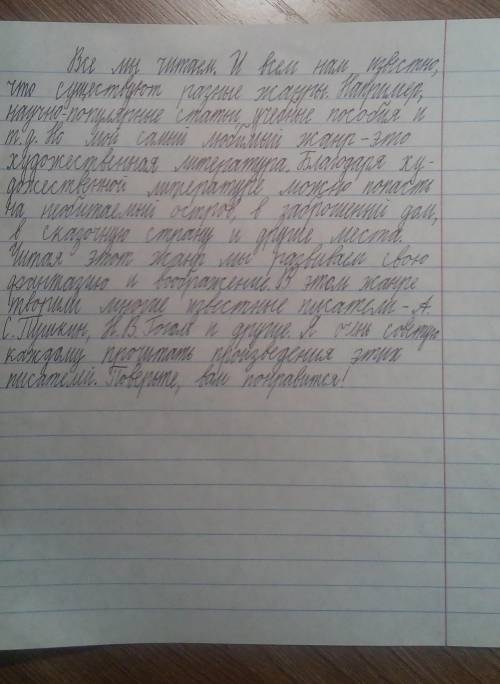 Все мы читаем. И всем нам известно,
что существуют разные жанры. Например,
научно-популярные статьи, учебные пособия и
т.д. Но мой самый любимый жанр - это
художественная литература. Благодаря ху-
дожественной литературе можно попасть
на необитаемый остров, в заброшенный дом,
в сказочную страну и другие места.
Читая этот жанр мы развиваем свою
фантазию и воображение. В этом жанре
творили многие известные писатели - А.
С. Пушкин, Н.В. Гоголь и другие. Я очень советую
каждому прочитать произведения этих
писателей. Поверьте, вам понравится!